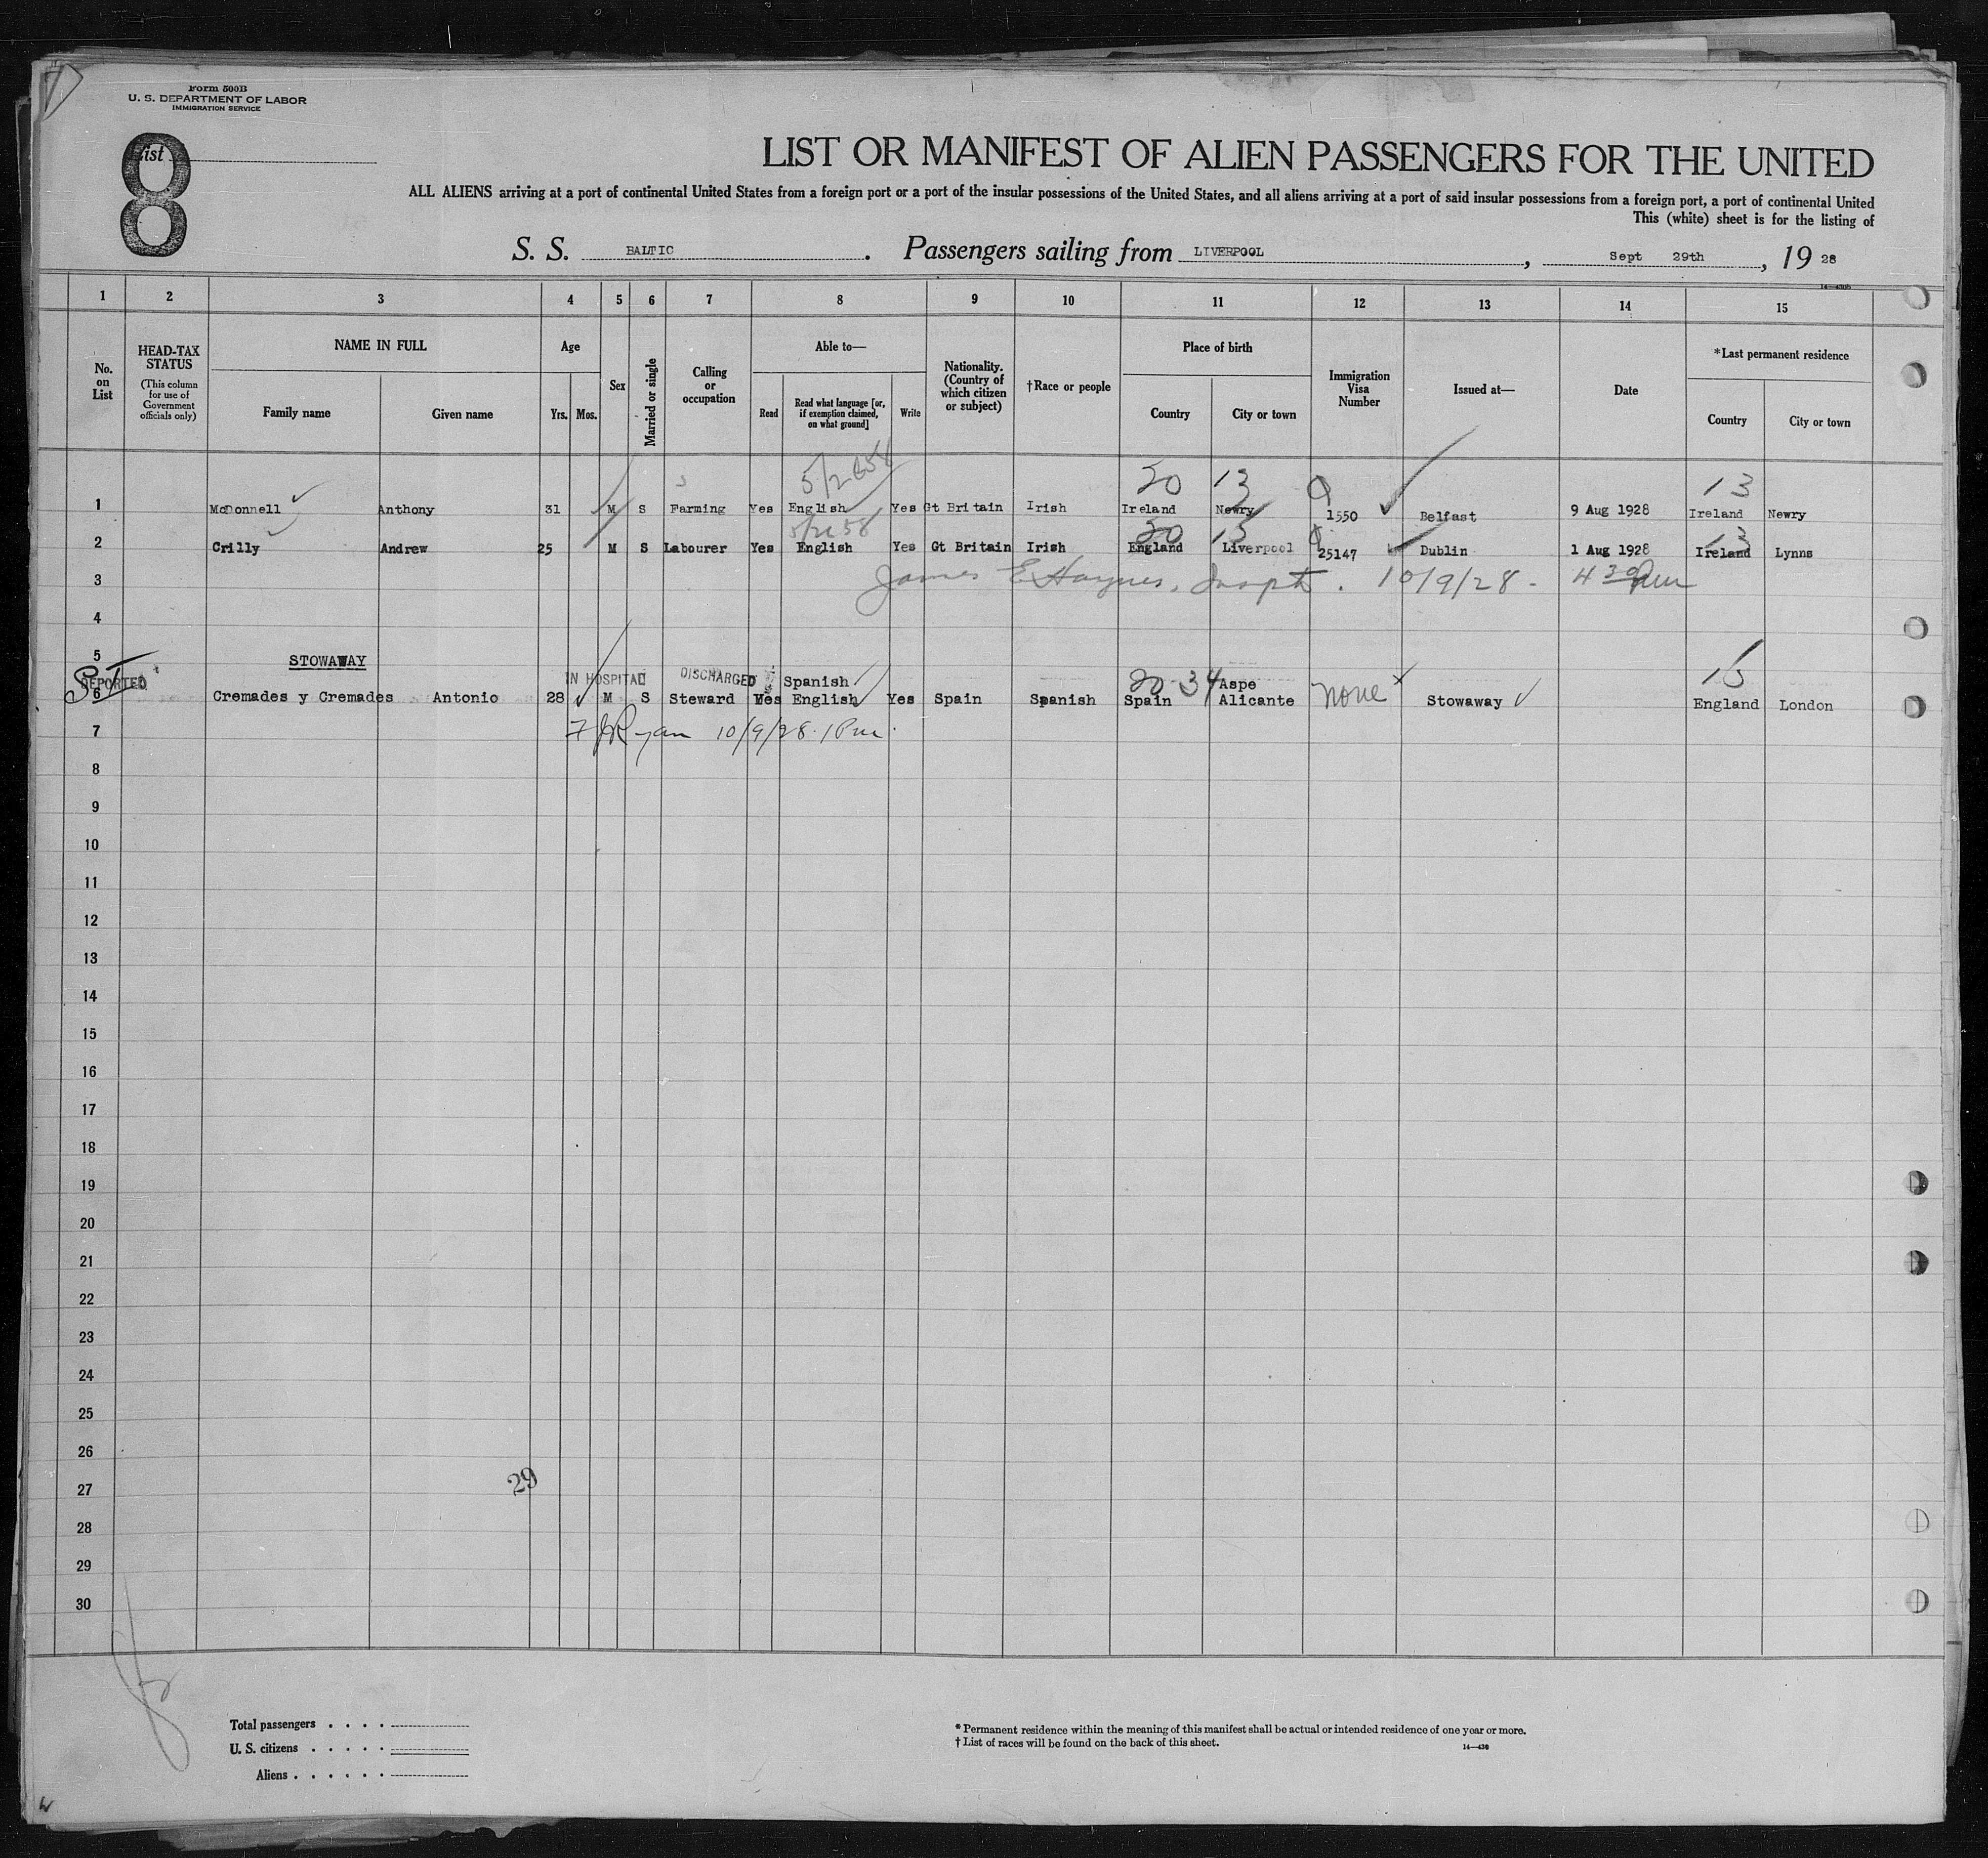 Form 500B
U. S. DEPARTMENT OF LABOR
IMMIGRATION SERVICE
8
List
LIST OR MANIFEST OF ALIEN PASSENGERS FOR THE UNITED
ALL ALIENS arriving at a port of continental United States from a foreign port or a port of the insular possessions of the United States, and all aliens arriving at a port of said insular possessions from a foreign port, a port of continental United
This (white) sheet is for the listing of
S. S. BALTIC . Passengers sailing from LIVERPOOL , Sept 29th , 19 28
1 2 3 4 5 6 7 8 9 10 11 12 13 14 15
No. on List
HEAD-TAX STATUS
(This column for use of Government officials only)
NAME IN FULL
Family name Given name
Age
Yrs. Mos.
Sex
Married or single
Calling or occupation
Able to—
Read
Read what language [or, if exemption claimed, on what ground]
Write
Nationality. (Country of which citizen or subject)
†Race or people
Place of birth
Country City or town
Immigration Visa Number
Issued at—
Date
*Last permanent residence
Country City or town
20 13 13
1 McDonnell Anthony 31 M S Farming Yes English Yes Gt Britain Irish Ireland Newry 1550 Belfast 9 Aug 1928 Ireland Newry
20 13 13
2 Crilly Andrew 25 M S Labourer Yes English Yes Gt Britain Irish England Liverpool 25147 Dublin 1 Aug 1928 Ireland Lynns
3 James E. Haynes, Inspt. 10/9/28 - 4 30 pm
4
5 STOWAWAY
DEPORTED IN HOSPITAL DISCHARGED Spanish 20 34 Aspe 13
6 Cremades y Cremades Antonio 28 M S Steward Yes English Yes Spain Spanish Spain Alicante none Stowaway England London
7 F J Ryan 10/9/28 1 Pm.
8
9
10
11
12
13
14
15
16
17
18
19
20
21
22
23
24
25
26
27 29
28
29
30
Total passengers . . . .
U. S. citizens . . . . .
Aliens . . . . . .
* Permanent residence within the meaning of this manifest shall be actual or intended residence of one year or more.
† List of races will be found on the back of this sheet.
14—430